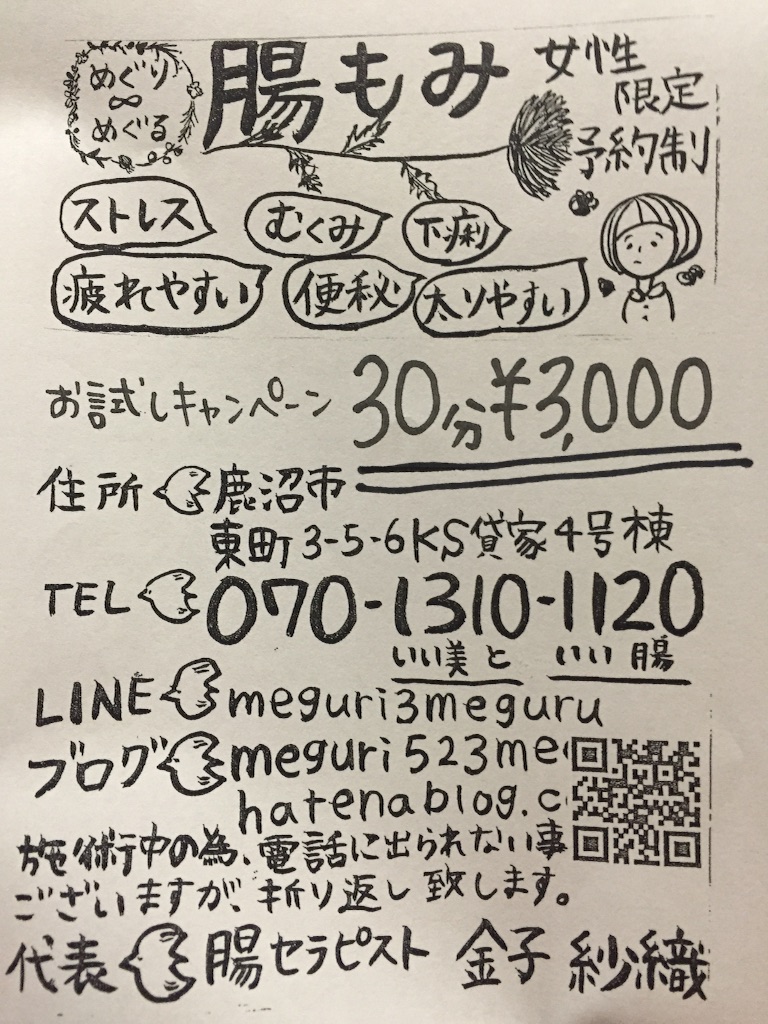 めぐり
∞
めぐる
腸もみ
女性
限定
予約制
ストレス
むくみ
下痢
疲れやすい
便秘
太りやすい
お試しキャンペーン 30分¥3,000
住所 鹿沼市
東町3-5-6KS貸家4号棟
TEL 070-1310-1120
いい美と いい腸
LINE meguri3meguru
ブログ meguri523me
hatenablog.c
施術中の為、電話に出られない事
ございますが、折り返し致します。
代表 腸セラピスト 金子 紗織